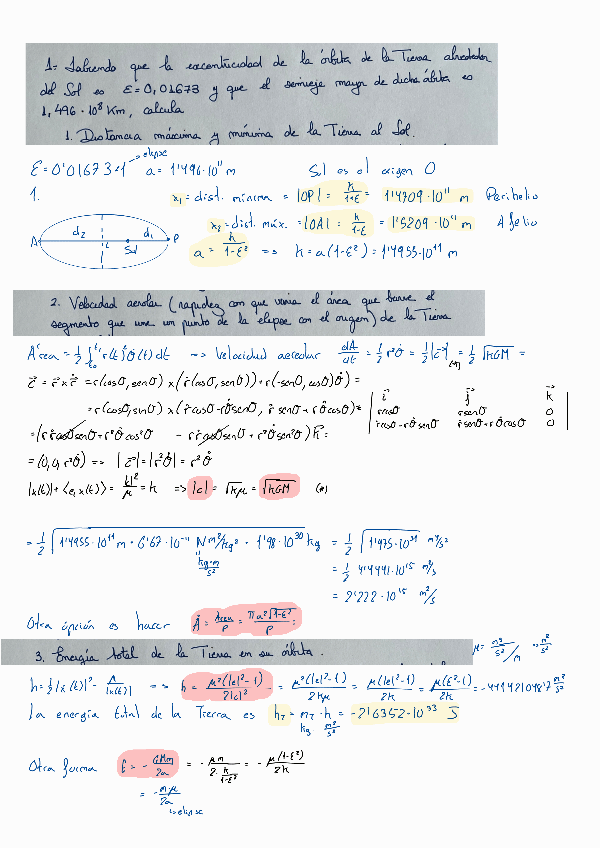 1= Sabiendo que la excentricidad de la órbita de la Tierra alrededor
del Sol es ε=0,01673 y que el semieje mayor de dicha órbita es
1,496·10⁸ Km, calcula
1. Distancia máxima y mínima de la Tierra al Sol.
ε=0'01673<1 → elipse a=1'496·10¹¹ m Sol es el origen O
1. x₁=dist. mínima = |OP| = k/(1+ε) = 1'4709·10¹¹ m Perihelio
x₂=dist. máx. = |OA| = k/(1-ε) = 1'5209·10¹¹ m Afelio
a = k/(1-ε²) => k=a(1-ε²)=1'4955·10¹¹ m
A d₂ c Sol d₁ P
2. Velocidad aerolar (rapidez con que varía el área que barre el
segmento que une un punto de la elipse con el origen) de la Tierra
Área = ½∫r(t)²θ̇(t)dt => Velocidad aereolar dA/dt = ½ r²θ̇ = ½|c⃗| = ½√kGM =
c⃗ = r⃗ x ṙ⃗ = r(cosθ, senθ) x (ṙ(cosθ, senθ)+r(-senθ, cosθ)θ̇) =
= r(cosθ, senθ) x (ṙcosθ-rθ̇senθ, ṙsenθ+rθ̇cosθ)*
i⃗ j⃗ k⃗
rcosθ rsenθ 0
ṙcosθ-rθ̇senθ ṙsenθ+rθ̇cosθ 0
=(rṙcosθsenθ+r²θ̇cos²θ - rṙcosθsenθ+r²θ̇sen²θ)k⃗=
=(0,0,r²θ̇) => |c⃗|=|r²θ̇|=r²θ̇
|x(t)|+<e,x(t)>= |c|²/μ = k => |c|=√kμ=√kGM (*)
= ½ √1'4955·10¹¹ m · 6'67·10⁻¹¹ N m²/kg² · 1'98·10³⁰ kg = ½ √1'975·10³¹ m⁴/s²
kg·m/s² = ½ 4'4441·10¹⁵ m²/s
= 2'222·10¹⁵ m²/s
Otra opción es hacer Ȧ = Área/P = πa²√1-ε²/P =
3. Energía total de la Tierra en su órbita.
h=½|ẋ(t)|²- μ/|x(t)| => h = μ²(|e|²-1)/2|c|² = μ²(|e|²-1)/2kμ = μ(|e|²-1)/2k = μ(ε²-1)/2k =
la energía total de la Tierra es h_T = m_T·h = -2'6352·10³³ J
kg m²/s²
Otra forma E = - GMm/2a = - μm/(2·k/(1-ε²)) = - μ(1-ε²)/2k
= - mμ/2a
→ elipse